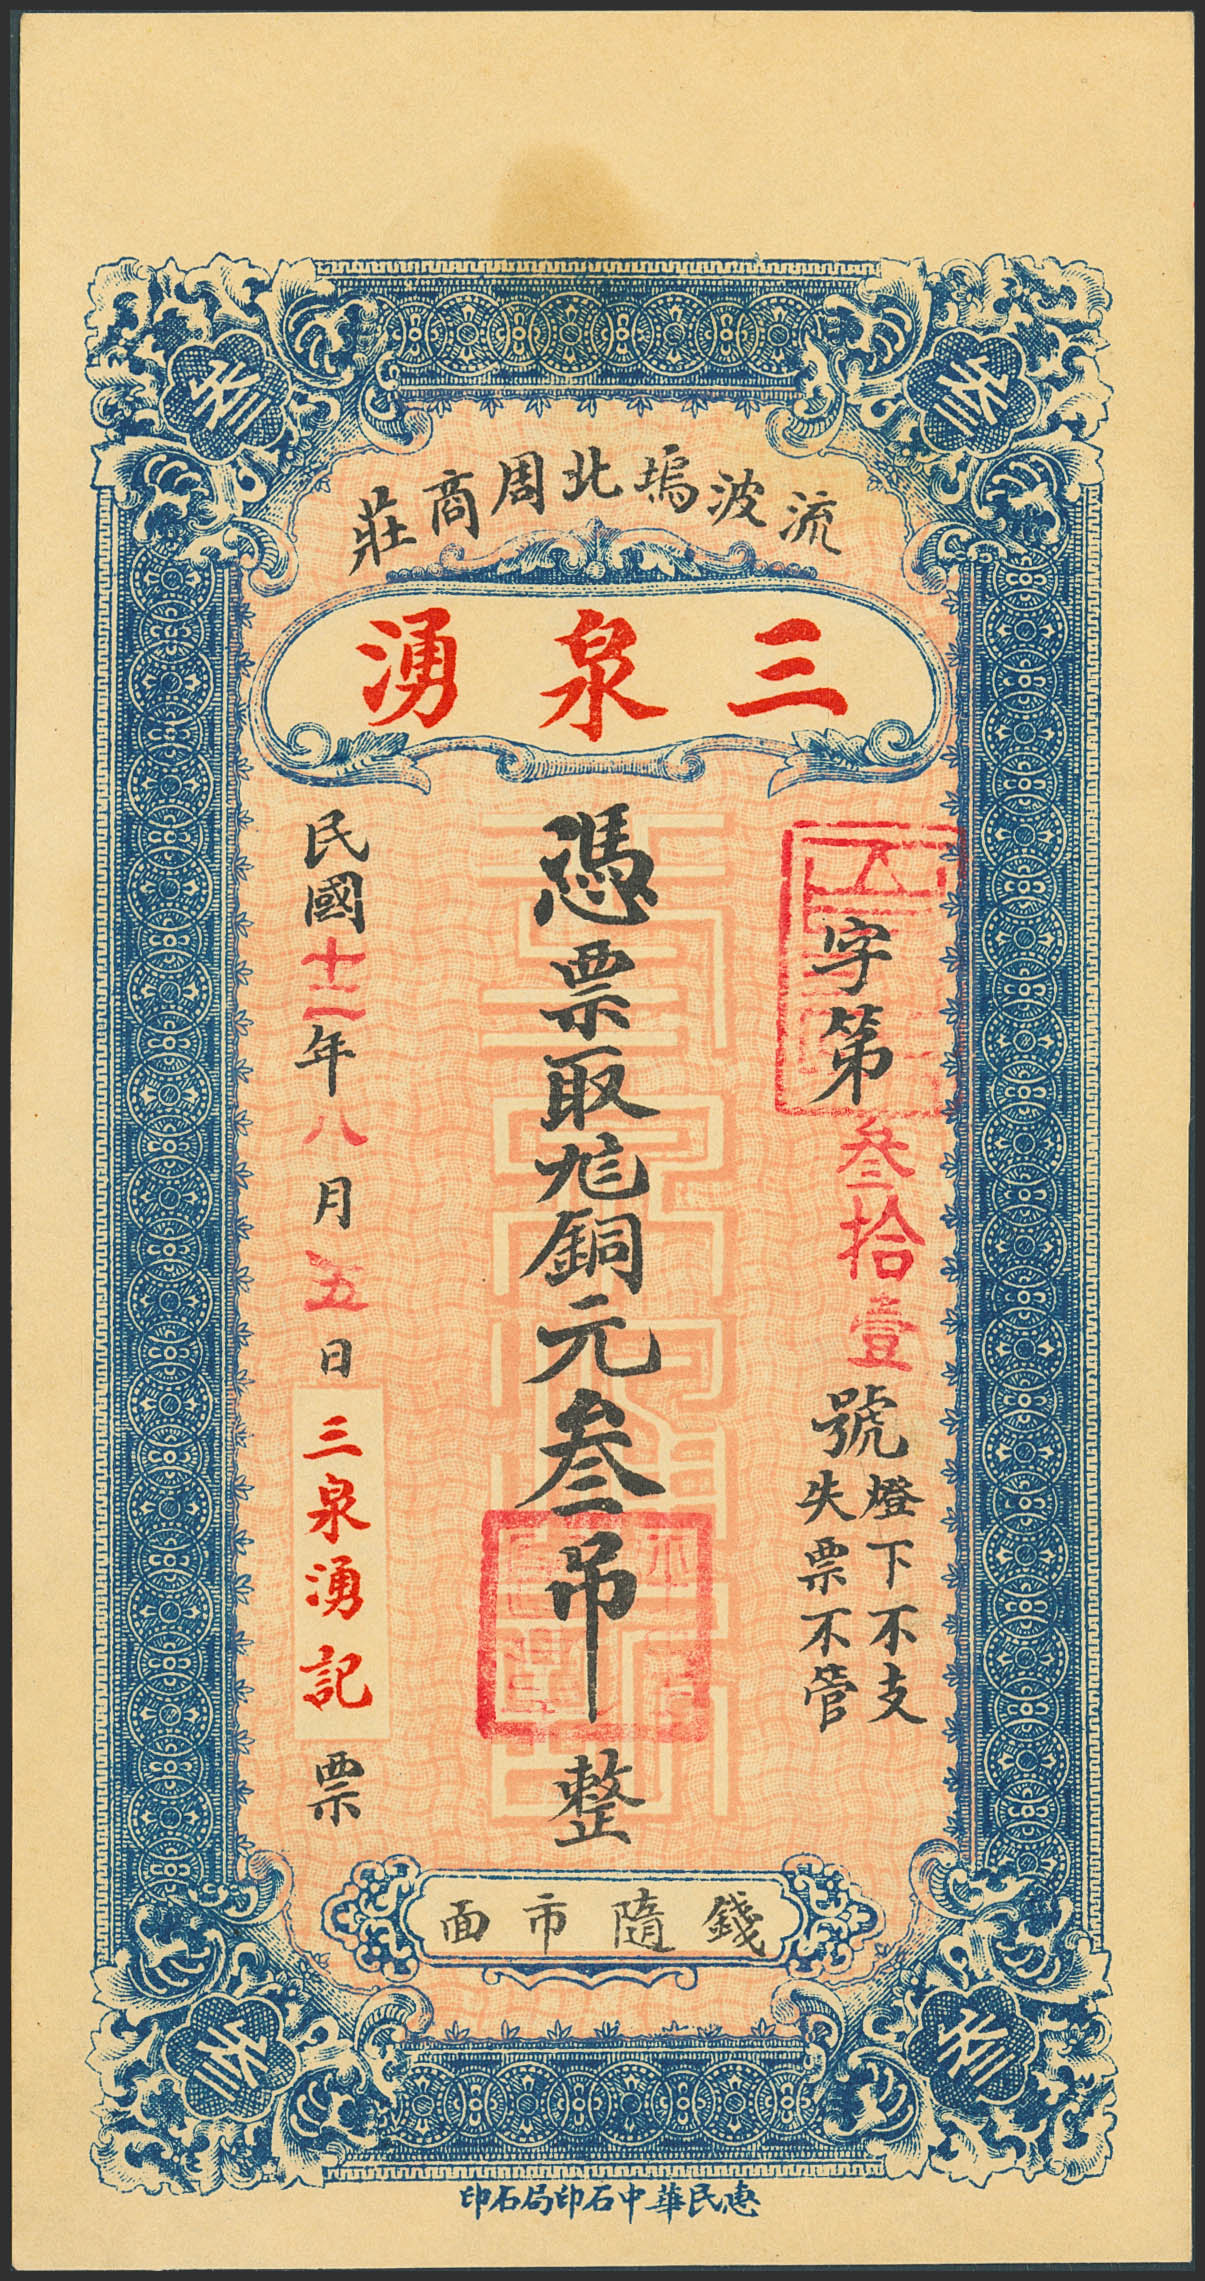 流波塢北周商莊
三泉湧
字第叁拾壹號
燈下不支
失票不管
憑票取銅元叁吊整
民國十二年八月五日三泉湧記票
錢隨市面
惠民華中石印局石印
叁
叁
叁
叁